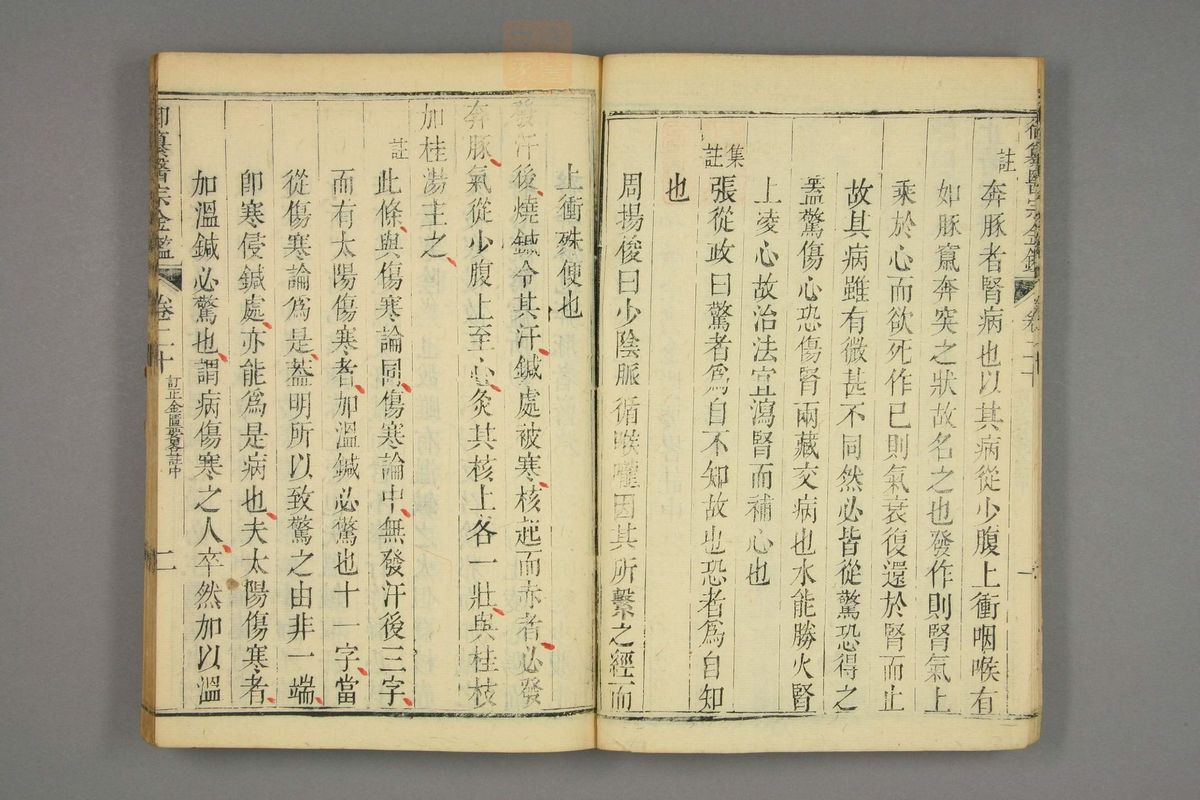 註
奔豚者腎病也以其病從少腹上衝咽喉有
如豚竄奔突之狀故名之也發作則腎氣上
乘於心而欲死作已則氣衰復還於腎而止
故其病雖有微甚不同然必皆從驚恐得之
蓋驚傷心恐傷腎兩藏交病也水能勝火腎
上凌心故治法宜瀉腎而補心也
集註
張從政曰驚者爲自不知故也恐者爲自知
也
周揚俊曰少陰脈循喉嚨因其所繫之經而
上衝殊便也
發汗後燒鍼令其汗鍼處被寒核起而赤者必發
奔豚氣從少腹上至心灸其核上各一壯與桂枝
加桂湯主之
註
此條與傷寒論同傷寒論中無發汗後三字
而有太陽傷寒者加溫鍼必驚也十一字當
從傷寒論爲是蓋明所以致驚之由非一端
卽寒侵鍼處亦能爲是病也夫太陽傷寒者
加溫鍼必驚也謂病傷寒之人卒然加以溫
御纂醫宗金鑑
卷二十
訂正金匱要畧註中
二